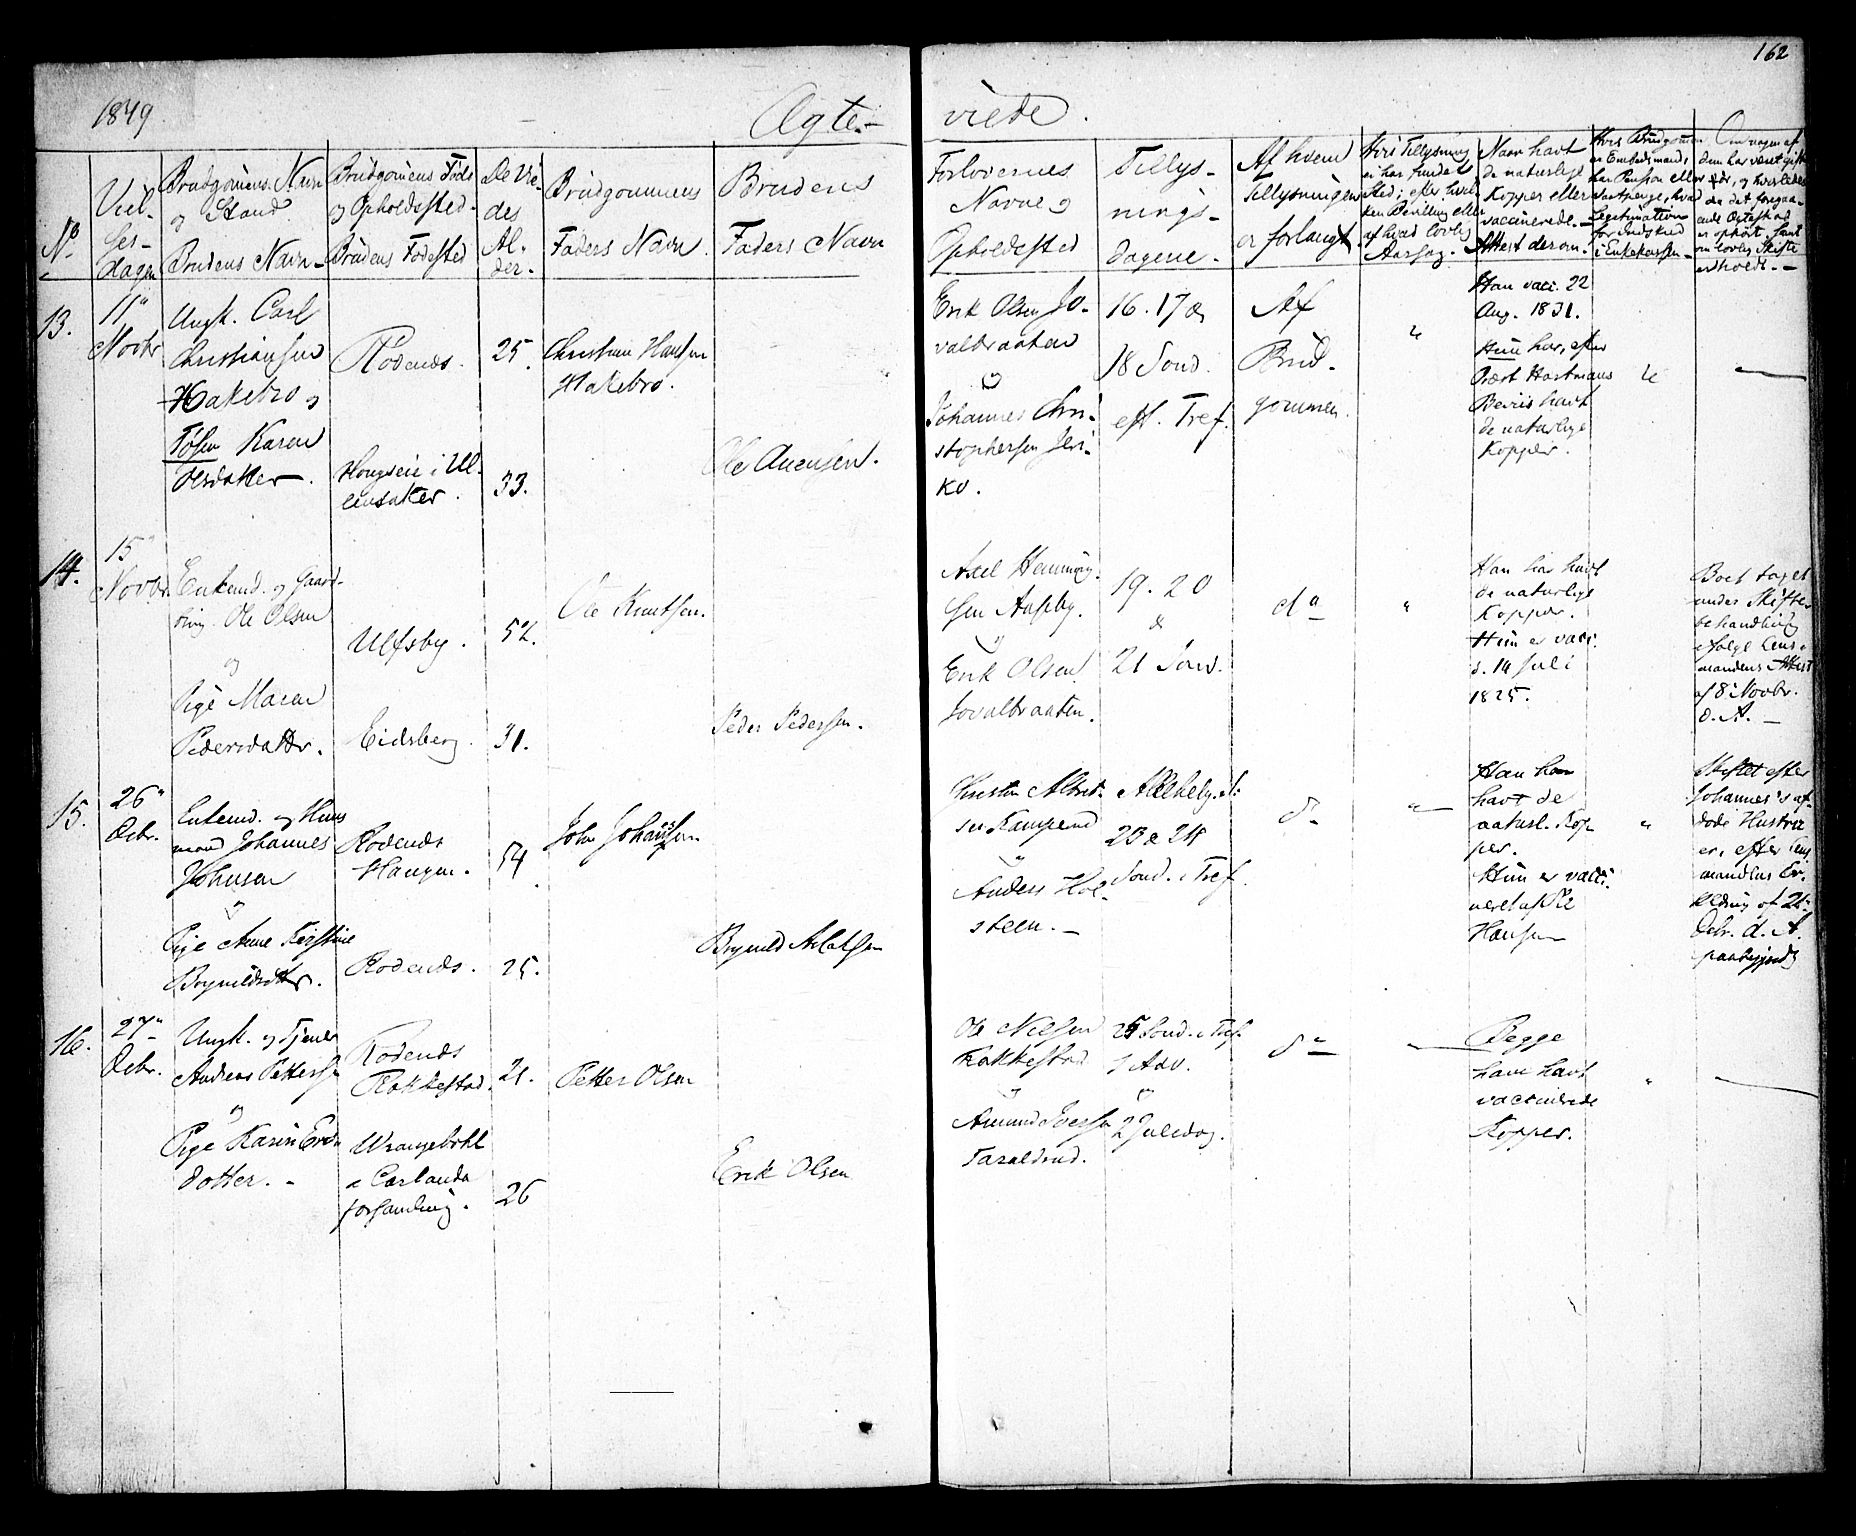 162
1849
Ægte-
viede.
No
Viel-
ses-
dagen
Brudgomens Navn
og Stand.
Brudens Navn-
Brudgomens Føde
og Opholdested-
Brudens Fødested
De Vie-
des
Al-
der.-
Brudgommens
Faders Navn.
Brudens
Faders Navn
Forlovernes
Navne og
Opholdested
Tillys-
nings-
dagene.
Af hvem
Tillysningen
er forlangt
Hvis Tillysning
ei har fundet
Sted; efter hvil-
ken Bevilling eller
af hvad lovlig
Aarsag.-
Naar havt
de naturlige
Kopper eller
vaccinerede.-
Attest derom.
Hvis Brudgomen
er Embedsmand;
har Pension eller
Vartpenge, hvad
Legitimation
for Indskud
i Enkekassen-
Om nogen af
dem har været gift
før, og hvorledes
da det foregaa-
ende Ægtesk. af
er ophørt, samt
om lovlig Skifte
er holdt.-
13.
11"
Novbr
Ungk. Carl
Christiansen
Hakebro og
Tøsen Karen
Olsdatter-.
Rødenæs.
Hougseie i Ul-
lensaker.
25.
33.
Christian Hansen
Hakebro.
Ole Auensen.
Erik Olsen Jo-
valbraaten
og
Johannes Chri-
stophersen Jeri-
ko.
16. 17 &
18 Sønd.
eft. Tref.
Af
Brud-
gommen.
"
Han vacc. 22
Aug. 1831.
Hun har, efter
Præst Hartmans
Beviis havt
de naturlige
Kopper.
14.
15"
Novbr.
Enkemd. og Gaard-
brug. Ole Olsen
og
Pige Maren
Pedersdattr.
Ulfsby.
Eidsberg.
52.
31.
Ole Knutsen.
Peder Pedersen.
Axel Henning-
sen Aasby.
og
Erik Olsen
Jovalbraaten.
19. 20
&
21 Sønd.
do
"
Han har havt
de naturlige
Kopper.
Hun er vacc.
d. 14 Juli
1825.
Boet taget
under Skifte-
behandling
ifølge Lens-
mandens Attest
af 8 Novbr.
d. A. -
15.
26"
Decbr.
Enkemd. og Huus
mand Johannes
Johnsen
og
Pige Anne Kirstine
Brynildsdttr.
Rødenæs
Haugen.
Rødenæs.
54.
25.
John Johansen
Brynild
Christen
og
Anders Hol-
steen.-
Allehelg. d:
23 & 24
Sønd. i Tref.
do
"
Han har
havt de
naturl. Kop
per.
Hun er vacci-
neret af Ole
Hansen
"
Skiftet efter
Johannes's af-
døde Hustru
er, efter Lens
mandens Er-
klæring af 21
Decbr. d. A.
paabegyndt
16.
27"
Decbr.
Ungk. og Tjener
Andreas Petterse
og
Pige Karin Eriks
dotter.-
Rødenæs
Rakkestad.
Wrangebohl
i Carlanda
forsamling.
21.
26
Petter Olsen
Erik Olsen
Ole Nilsen
Rakkestad
og
Amund Iversen
Taraldrud.
25 Sønd. i Tref.
1 Adv.
og
2 Juledag.
do
"
Begge
have havt
vaccinerede
Kopper.
"